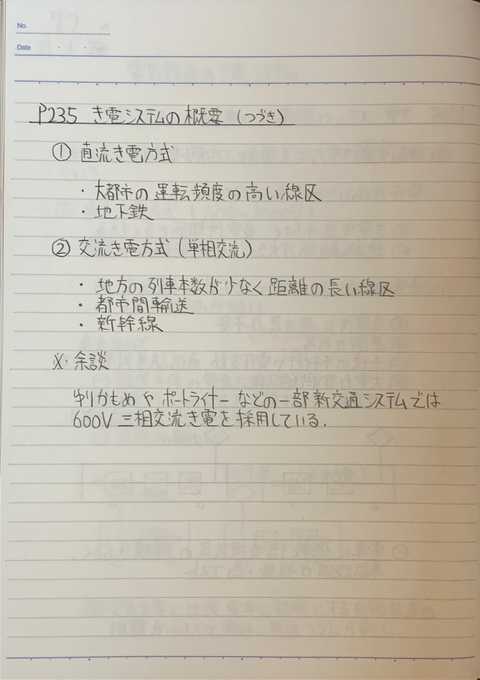 No.
Date
P235 き電システムの概要（つづき）
① 直流き電方式
・大都市の運転頻度の高い線区
・地下鉄
② 交流き電方式（単相交流）
・地方の列車本数が少なく距離の長い線区
・都市間輸送
・新幹線
※余談
ゆりかもめやポートライナーなどの一部新交通システムでは
600V 三相交流き電を採用している.